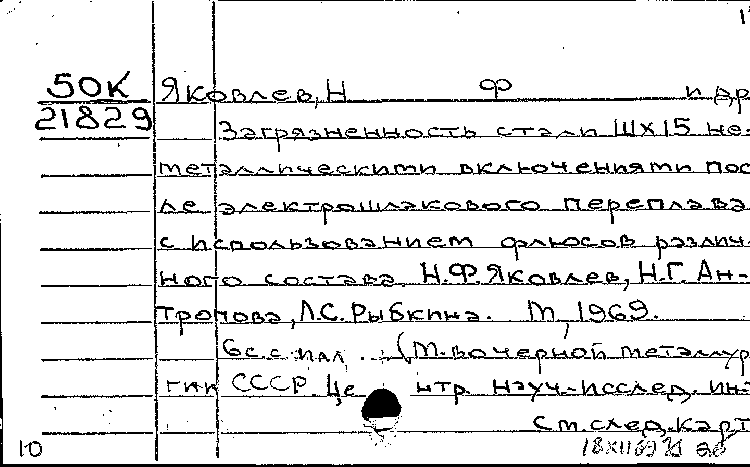 50К Яковлев, Н Ф и др
21829 Загрязненность стали ШХ15 не-
металлическими включениями пос
ле электрошлакового переплава
с использованием флюсов различ
ного состава. Н.Ф. Яковлев, Н.Г. Ан-
тропова, Л.С. Рыбкина. М, 1969.
6с. с ил. (М-во черной металлур
гии СССР. Це нтр науч-исслед. ин-
См. след. карт
10